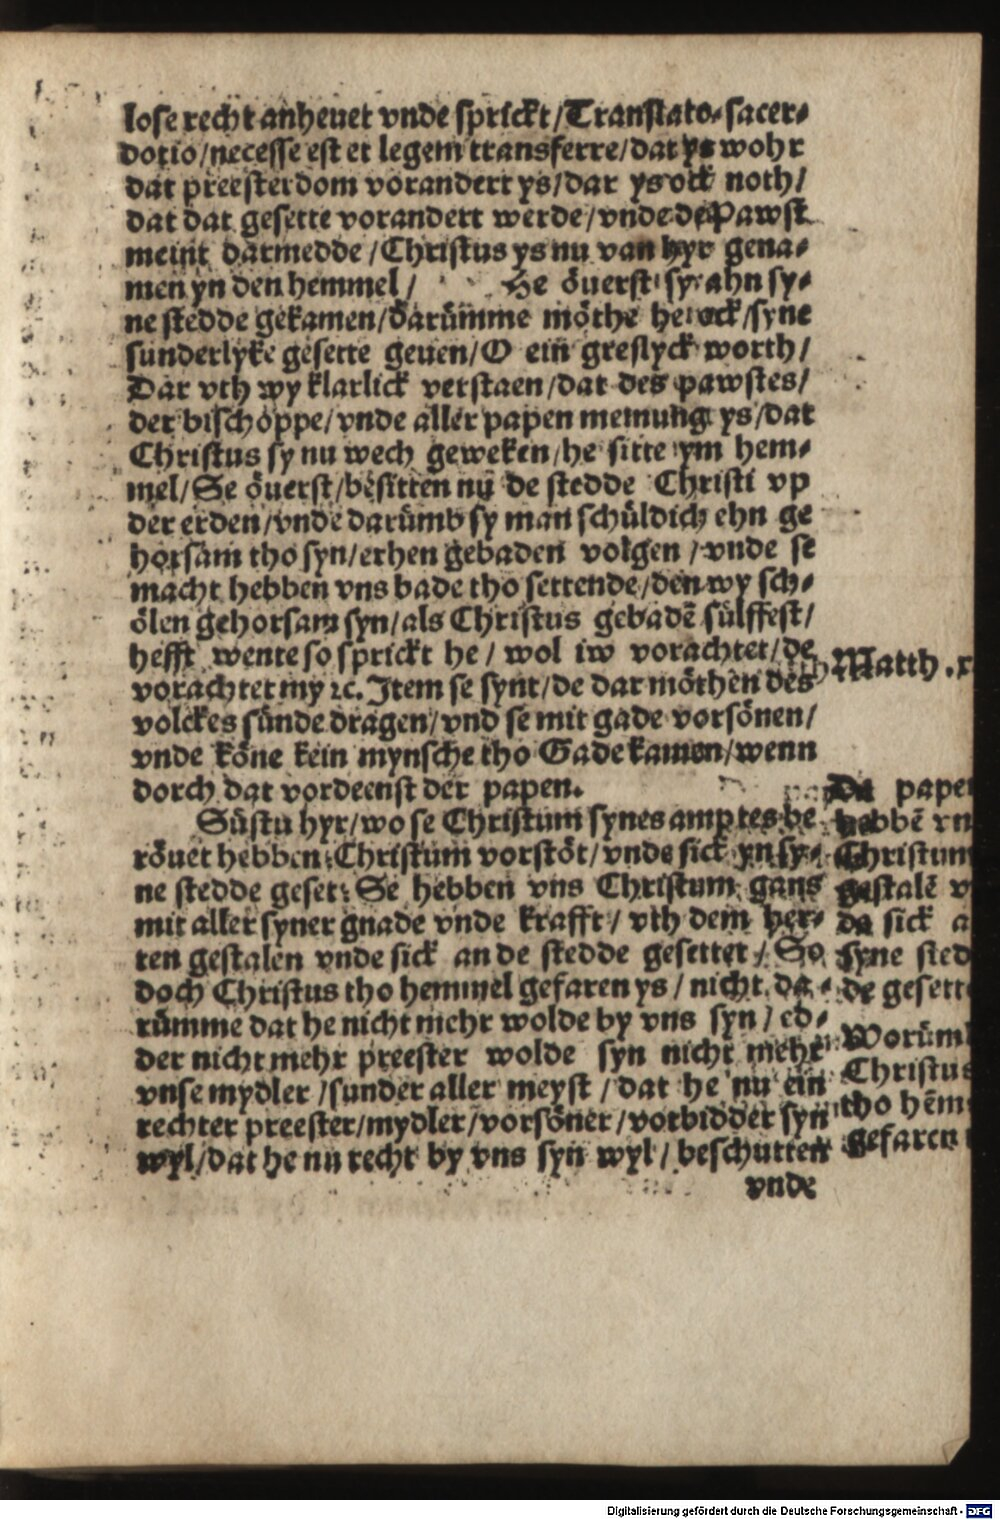 lose recht anheuet vnde sprickt/Translato- sacer-
dotio/necesse est et legem transferre/dat ys wohr
dat preesterdom vorandert ys/dar ys ock noth/
dat dat gesette vorandert werde/vnde de Pawst
meint darmedde/Christus ys nu van hyr gena-
men yn den hemmel/ He öuerst sy ahn sy-
ne stedde gekamen/darümme möthe he ock/syne
sunderlyke gesette geuen/O ein greslyck worth/
Dar vth wy klarlick verstaen/dat des pawstes/
der bischoppe/vnde aller papen meinung ys/dat
Christus sy nu wech geweken/he sitte ym hem-
mel/Se öuerst/besitten nu de stedde Christi vp
der erden/vnde darümb sy man schüldich ehn ge
horsam tho syn/erhen gebaden volgen/vnde se
macht hebben vns bade tho settende/den wy sch-
ölen gehorsam syn/als Christus gebadē sülffest/
hefft wente so sprickt he/ wol iw vorachtet/de
vorachtet my ꝛc. Item se synt/de dar möthen des
volckes sünde dragen/vnd se mit gade vorsönen/
vnde köne kein mynsche tho Gade kamen/wenn
dorch dat vordeenst der papen.
Süstu hyr/wo se Christum synes amptes be
röuet hebben/Christum vorstöt/vnde sick yn sy-
ne stedde geset: Se hebben vns Christum gans
mit aller syner gnade vnde krafft/ vth dem her-
ten gestalen vnde sick an de stedde gesettet/ So
doch Christus tho hemmel gefaren ys/ nicht da-
rümme dat he nicht mehr wolde by vns syn/ ed-
der nicht mehr preester wolde syn nicht mehr
vnse mydler/sunder aller meyst/dat he nu ein
rechter preester/mydler/vorsöner/vorbidder syn
wyl/dat he nu recht by vns syn wyl/ beschutten
vnde
Matth. x
De papen
hebbē vn
Christum
gestalē v
de sick a
syne sted
de gesett
Worüm
Christus
tho hēm
gefaren
Digitalisierung gefördert durch die Deutsche Forschungsgemeinschaft - DFG